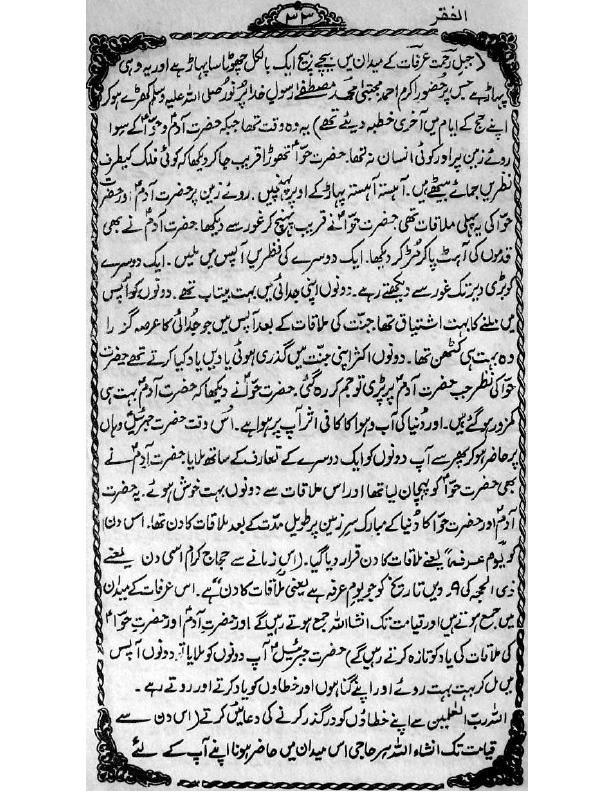 الفقر
۳۳
(جبلِ رحمت عرفات کے میدان میں بیچ بیچ ایک بالکل چھوٹا سا پہاڑ ہے اور یہ وہی
پہاڑ ہے جس پر حضور اکرم احمد مجتبیٰ محمد مصطفےٰ رسولِ خدا پُر نور صلی اللہ علیہ وسلم کھڑے ہو کر
اپنے حج کے ایام میں آخری خطبہ دیئے تھے) یہ وہ وقت تھا جبکہ حضرت آدمؑ و حواؑ کے سوا
روئے زمین پر اور کوئی انسان نہ تھا۔ حضرت حواؑ تھوڑا قریب جا کر دیکھا کہ کوئی فلک کیطرف
نظریں جمائے بیٹھے ہیں۔ آہستہ آہستہ پہاڑ کے اوپر پہنچیں۔ روئے زمین پر حضرت آدمؑ اور حضرت
حواؑ کی یہ پہلی ملاقات تھی حضرت حواؑ نے قریب پہنچ کر غور سے دیکھا۔ حضرت آدمؑ نے بھی
قدموں کی آہٹ پا کر مُڑ کر دیکھا۔ ایک دوسرے کی نظریں آپس میں ملیں۔ ایک دوسرے
کو بڑی دیر تک غور سے دیکھتے رہے۔ دونوں اپنی جدائی میں بہت بیتاب تھے۔ دونوں کو آپس
میں ملنے کا بہت اشتیاق تھا۔ جنت کی ملاقات کے بعد آپس میں جو جُدائی کا عرصہ گزرا
وہ بہت ہی کٹھن تھا۔ دونوں اکثر اپنی جنت میں گذری ہوئی یادیں یاد کیا کرتے تھے حضرت
حواؑ کی نظر جب حضرت آدمؑ پر پڑی تو جم کر رہ گئی۔ حضرت حواؑ نے دیکھا کہ حضرت آدمؑ بہت ہی
کمزور ہو گئے ہیں۔ اور دُنیا کی آب و ہوا کا کافی اثر آپ پر ہوا ہے۔ اُس وقت حضرت جبرئیلؑ وہاں
پر حاضر ہو کر پھر سے آپ دونوں کو ایک دوسرے کے تعارف کے ساتھ ملایا حضرت آدمؑ نے
بھی حضرت حواؑ کو پہچان لیا تھا اور اس ملاقات سے دونوں بہت خوش ہوئے۔ یہ حضرت
آدمؑ اور حضرت حواؑ کا دُنیا کے مبارک سرزمین پر طویل مدّت کے بعد ملاقات کا دن تھا۔ اس دن
کو "یومِ عرفہ" یعنے ملاقات کا دن قرار دیا گیا۔ (اس زمانے سے حجاج کرام اسی دن یعنے
ذی الحجہ کی ۹ ویں تاریخ کو جو یومِ عرفہ ہے یعنی "ملاقات کا دن" ہے۔ اس عرفات کے میدان
میں جمع ہوتے ہیں اور قیامت تک انشاء اللہ جمع ہوتے رہیں گے اور حضرت آدمؑ اور حضرت حواؑ
کی ملاقات کی یاد کو تازہ کرتے رہیں گے) حضرت جبرئیلؑ آپ دونوں کو ملایا تو دونوں آپس
میں مل کر بہت بہت روئے اور اپنے گناہوں اور خطاؤں کو یاد کرتے اور روتے رہے۔
اللہ ربّ العلمین سے اپنے خطاؤں کو درگذر کرنے کی دعائیں کرتے (اس دن سے
قیامت تک انشاء اللہ ہر حاجی اس میدان میں حاضر ہونا اپنے آپ کے لئے